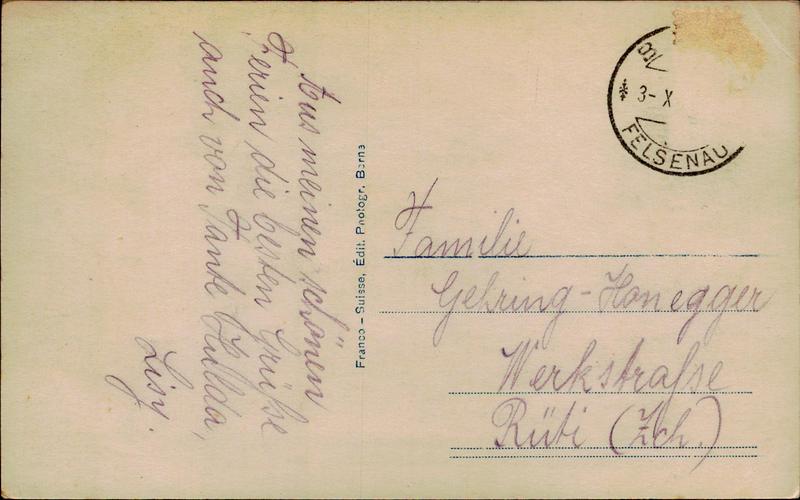 Aus meinen schönen
Ferien die besten Grüße
auch von Tante Hulda,
Lisy.
Franco - Suisse, Édit. Photogr. Berne
3-X
FELSENAU
Familie
Gehring-Honegger
Werkstraße
Rüti (Zch.)